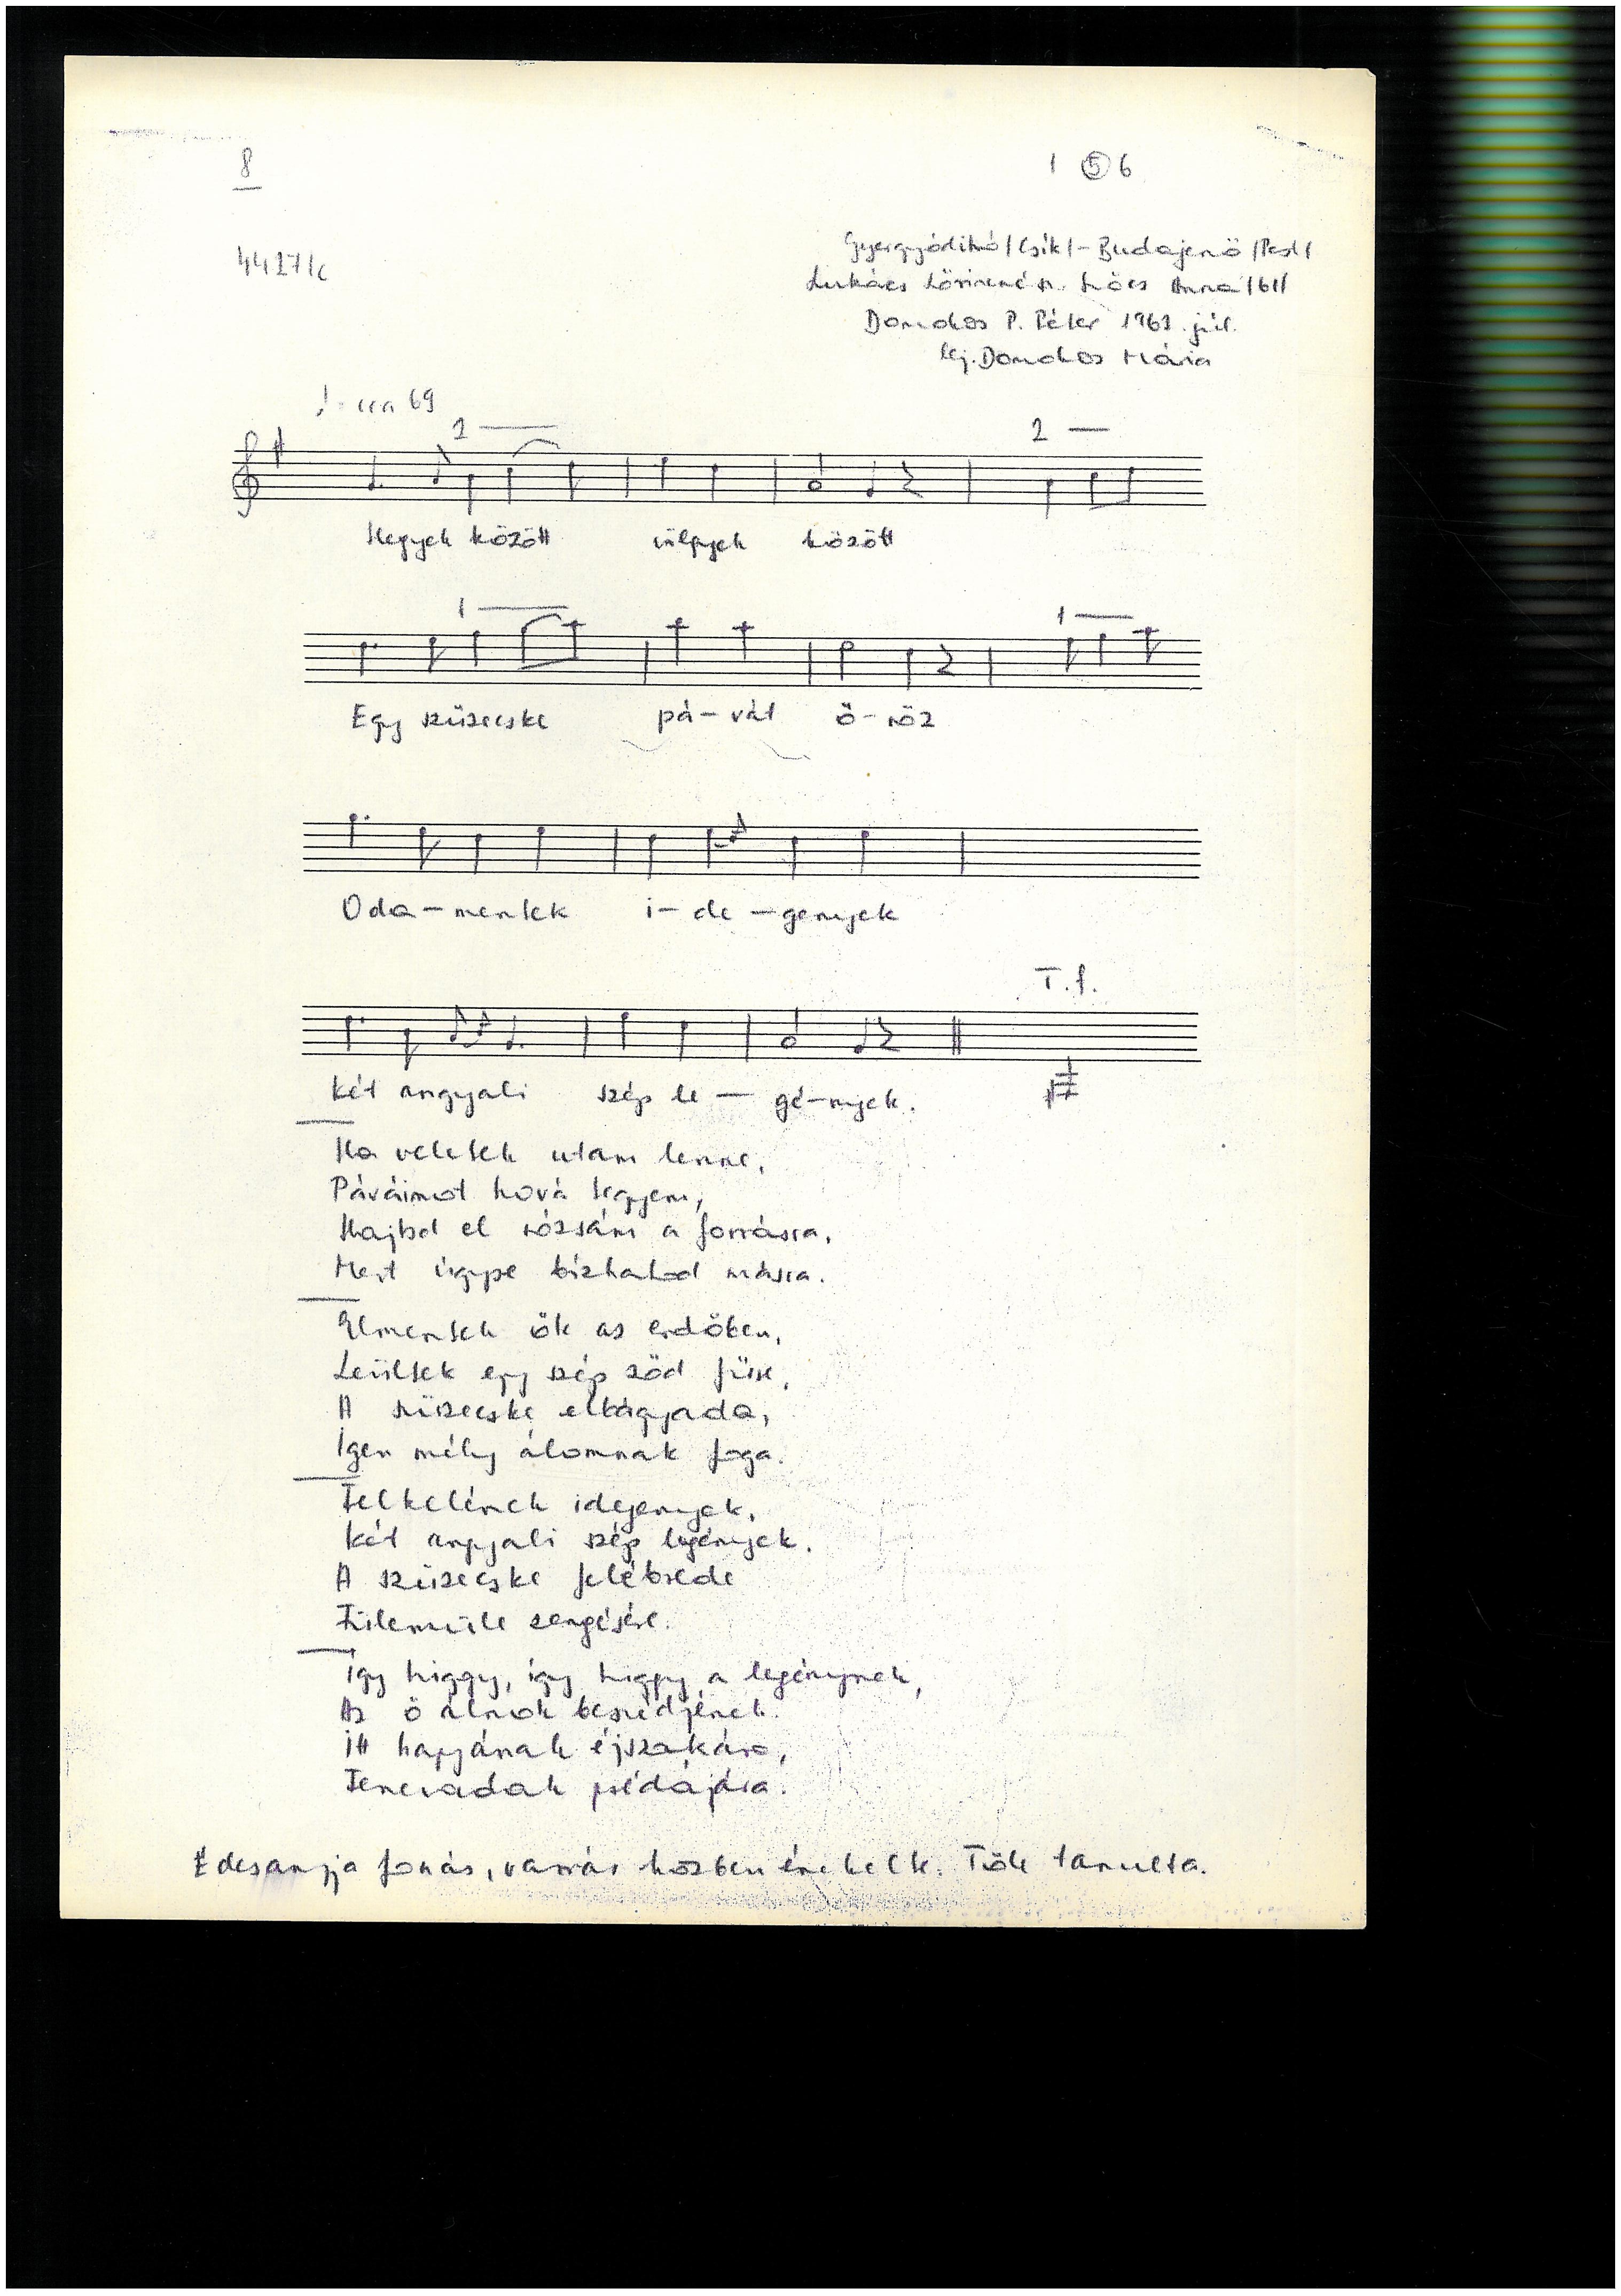 8
1 5 6
4427/c
Gyergyóditró/Csík/-Budajenő/Pest/
Lukács Lőrincné sz. Szőcs Anna/61/
Domokos P. Péter 1963. júl.
lej. Domokos Mária
cca 69
2
2
Hegyek között völgyek között
1
1
Egy szüzecske pá-vát ő-röz
Oda-mentek i-de-genyek
T.f.
Két angyali szép le-gé-nyek.
Ha veletek utam lenne,
Páváimot hová tegyem,
Hajtsd el rózsám a forrásra,
Mert úgyse bízhatod másra.
Elmentek ők az erdőben,
Leültek egy szép zöd füre,
A szüzecske elbágyada,
Igen mély álomnak foga.
Felkelének idegenyek,
Két angyali szép legények.
A szüzecske felébrede
Fülemüle zengésére.
Így higgy, így higgy a legénynek,
Az ő álnok beszédjének.
Itt hagyának éjszakára,
Fenevadak prédájára.
Édesanyja fonás, varrás közben énekelte. Tőle tanulta.